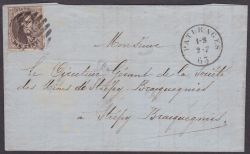 PATURAGES
1-8
2-7
63
Monsieur
Le Directeur Gérant de la Société
des Mines de Strépy Bracquegnies
à Strépy Bracquegnies